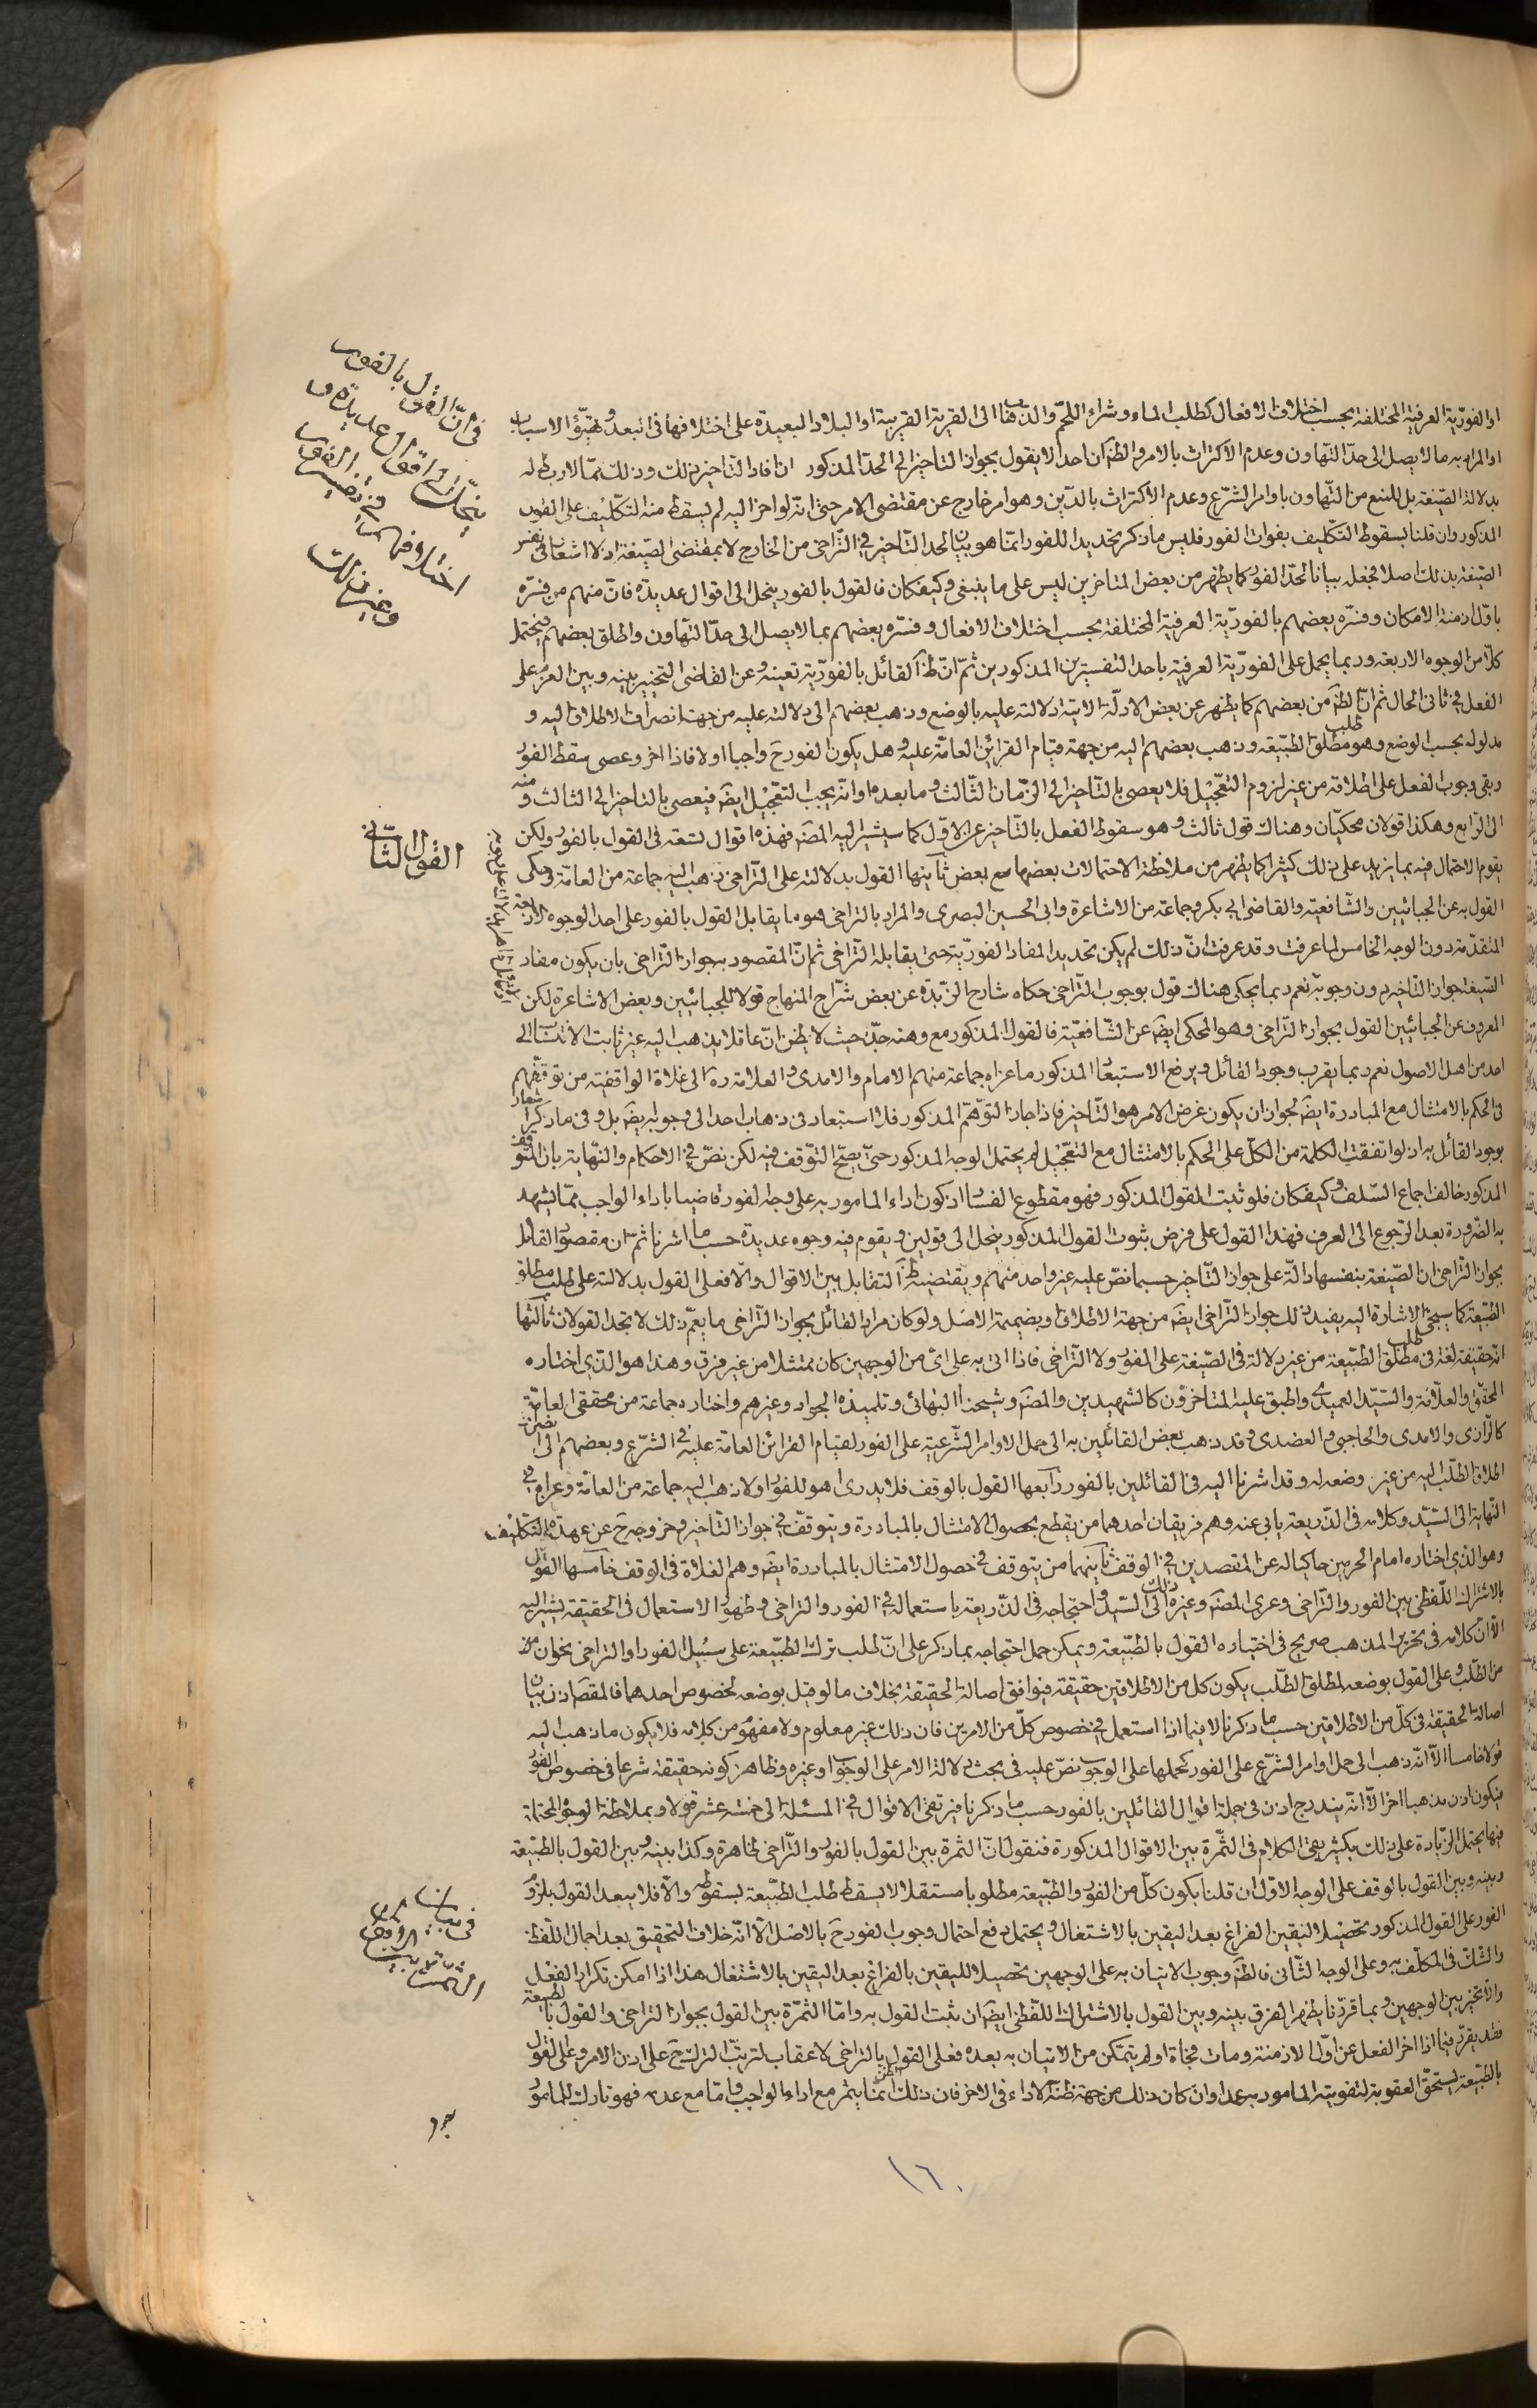 او الفوريّة العرفية المختلفة بحسب اختلاف الافعال كطلب الماء وشراء اللحم والذهاب الى القرية القريبة او البلاد البعيدة على اختلافها فى البعد وتهيّؤ الاسباب
او المراد به ما لا يصل الى حدّ التهاون وعدم الاكتراث بالامر والظ ان احدا لا يقول بجواز التاخير الى الحدّ المذكور ان افاد التاخير ذلك وذلك ممّا لا ربط له
بدلالة الصّيغة بل للمنع من التّهاون باوامر الشّرع وعدم الاكتراث بالدّين وهو امر خارج عن مقتضى الامر حتى انّه لو اخّر اليه لم يسقط منه التكليف على الفور
المذكور وان قلنا بسقوط التكليف بفوات الفور فليس ما ذكر تحديدا للفور انّما هو بيان لحد التّاخير فى التّراخى من الخارج لا بمقتضى الصّيغة اذ لا اشعار فى نفس
الصّيغة بذلك اصلا فجعله بيانا لحدّ الفور كما يظهر من بعض المتاخرين ليس على ما ينبغى وكيف كان فالقول بالفور ينحل الى اقوال عديدة فانّ منهم من فسّره
باوّل ازمنة الامكان وفسّره بعضهم بالفوريّة العرفية المختلفة بحسب اختلاف الافعال وفسّره بعضهم بما لا يصل الى حدّ التّهاون واطلق بعضهم فيحتمل
كلّا من الوجوه الاربعة وربما يحمل على الفوريّة العرفية باحد التفسيرين المذكورين ثمّ انّ ظ القائل بالفوريّة تعينه وعن القاضى التخيير بينه وبين العزم على
الفعل فى ثانى الحال ثم انّ الظ من بعضهم كما يظهر عن بعض الادلّة الاتية دلالته عليه بالوضع وذهب بعضهم الى دلالته عليه من جهة انصراف الاطلاق اليه و
مدلوله بحسب الوضع وهو مطلق طلب الطبيعة وذهب بعضهم اليه من جهة قيام القرائن العامّة عليه وهل يكون الفور ح واجبا اولا فاذا اخر وعصى سقط الفور
وبقى وجوب الفعل على اطلاقه من غير لزوم التعجيل فلا يعصى بالتّاخير الى الزّمان الثّالث وما بعده او انّه يجب التعجيل ايضَ فيعصى بالتاخير الى الثالث ومنه
الى الرّابع وهكذا قولان محكيّان وهناك قول ثالث وهو سقوط الفعل بالتّاخير عن الاوّل كما سيشير اليه المصَ فهذه اقوال تسعة فى القول بالفور ولكن
يقوم الاحتمال فيه بما يزيد على ذلك كثيرا كما يظهر من ملاحظة الاحتمالات بعضها مع بعض ثانيها القول بدلالته على التّراخى ذهب اليه جماعة من العامّة وحكى
القول به عن الجبائيين والشّافعيّة والقاضى ابى بكر وجماعة من الاشاعرة وابى الحسين البصرى والمراد بالتراخى هو ما يقابل القول بالفور على احد الوجوه الاربعة
المتقدّمة دون الوجه الخامس لما عرفت وقد عرفت انّ ذلك لم يكن تحديدا لمفاد الفوريّة حتى يقابله التّراخى ثم انّ المقصود بجواز التّراخى بان يكون مفاد
الصّيغة جواز التّاخير دون وجوبه نعم ربما يحكى هناك قول بوجوب التّراخى حكاه شارح الزّبدة عن بعض شرّاح المنهاج قولا للجبائيين وبعض الاشاعرة لكن
المعروف عن الجبائيين القول بجواز التّراخى وهو المحكى ايضَ عن الشّافعيّة فالقول المذكور مع وهنه جدّا حيث لا يظن انّ عاقلا يذهب اليه غير ثابت الانتساب الى
احد من اهل الاصول نعم ربما يقرب وجود القائل به ويرفع الاستبعاد المذكور ما عزاه جماعة منهم الامام والامدى والعلامة ره الى غلاة الواقفية من توقّفهم
فى الحكم بالامتثال مع المبادرة ايضَ لجواز ان يكون غرض الامر هو التّاخير فاذا جاز التّوهّم المذكور فلا استبعاد فى ذهاب احد الى وجوبه ايضَ بل وفى ما ذكر اشعار
بوجود القائل به اذ لو اتفقت الكلمة من الكلّ على الحكم بالامتثال مع التعجيل لم يحتمل الوجه المذكور حتى يصحّ التوّقف فيه لكن نصّ فى الاحكام والنّهاية بان المتوقف
المذكور خالف اجماع السّلف وكيف كان فلو ثبت القول المذكور فهو مقطوع الفساد اذ كون اداء المامور به على وجه الفور قاضيا باداء الواجب ممّا يشهد
به الضّرورة بعد الرّجوع الى العرف فهذا القول على فرض ثبوت القول المذكور ينحل الى قولين ويقوم فيه وجوه عديدة حسب ما اشرنا ثمّ انّ مقصود القائل
بجواز التّراخى ان الصّيغة بنفسها دالّة على جواز التّاخير حسبما نصّ عليه غير واحد منهم ويقتضيه ظ التقابل بين الاقوال والّا فعلى القول بدلالته على طلب مطلق
الطّبيعة كما سيجئ الاشارة اليه يفيد ذلك جواز التّراخى ايضَ من جهة الاطلاق وبضميمة الاصل ولو كان مراد القائل بجواز التّراخى ما يعمّ ذلك لا تحد القولان ثالثها
انّه حقيقة لغة فى مطلق طلب الطّبيعة من غير دلالة فى الصّيغة على الفور ولا التّراخى فاذا اتى به على اىّ من الوجهين كان ممتثلا من غير فرق وهذا هو الّذى اختاره
المحقّق والعلّامة والسّيّد العميدى واطبق عليه المتاخرون كالشهيدين والمصَ وشيخنا البهائى وتلميذه الجواد وغيرهم واختاره جماعة من محققى العامّة
كالرّازى والامدى والحاجبى والعضدى وقد ذهب بعض القائلين به الى حمل الاوامر الشّرعية على الفور لقيام القرائن العامّة عليه فى الشّرع وبعضهم الى انصراف
اطلاق الطّلب اليه من غير وضعه له وقد اشرنا اليه فى القائلين بالفور رابعها القول بالوقف فلا يدرى اهو للفور اولا ذهب اليه جماعة من العامّة وعزاه فى
النّهاية الى السّيّد وكلامه فى الذّريعة يابى عنه وهم فريقان احدهما من يقطع بحصول الامتثال بالمبادرة ويتوقّف فى جواز التّاخير وخروجه ح عن عهدة التّكليف
وهو الذى اختاره امام الحرمين حاكيا له عن المقتصدين فى الوقف ثانيهما من يتوقف فى حصول الامتثال بالمبادرة ايضَ وهم الغلاة فى الوقف خامسها القول
بالاشتراك اللّفظى بين الفور والتّراخى وعزى المصَ وغيره ذلك الى السّيّد واحتجاجه فى الذّريعة باستعماله فى الفور والتراخى وظهور الاستعمال فى الحقيقة يشير اليه
الّا انّ كلامه فى تحرير المذهب صريح فى اختياره القول بالطّبيعة ويمكن حمل احتجاجه بما ذكر على انّ طلب ترك الطّبيعة على سبيل الفور او التراخى نحوان
من الطّلب وعلى القول بوضعه لمطلق الطّلب يكون كل من الاطلاقين حقيقة فيوافق اصالة الحقيقة بخلاف ما لو قيل بوضعه لخصوص احدهما فالمقصَ اذن بيان
اصالة الحقيقة فى كلّ من الاطلاقين حسب ما ذكرنا لا فيما اذا استعمل فى خصوص كلّ من الامرين فان ذلك غير معلوم ولا مفهوم من كلامه فلا يكون ما ذهب اليه
قولا خامسا الّا انّه ذهب الى حمل اوامر الشّرع على الفور كحملها على الوجوب نصّ عليه فى بحث دلالة الامر على الوجوب او غيره وظاهر كونه حقيقة شرعا فى خصوص الفور
فيكون اذن مذهبا اخر الّا انّه يندرج اذن فى جملة اقوال القائلين بالفور حسب ما ذكرنا فيرتقى الاقوال فى المسئلة الى خمسة عشر قولا وبملاحظة الوجوه المحتملة
فيها يحتمل الزّيادة على ذلك بكثير بقى الكلام فى الثّمرة بين الاقوال المذكورة فنقول انّ الثمرة بين القول بالفور والتّراخى ظاهرة وكذا بينه وبين القول بالطّبيعة
وبينه وبين القول بالوقف على الوجه الاوّل ان قلنا بكون كلّ من الفور والطّبيعة مطلوبا مستقلا لا يسقط طلب الطّبيعة بسقوطه والّا فلا يبعد القول بلزوم
الفور على القول المذكور تحصيلا لليقين الفراغ بعد اليقين بالاشتغال ويحتمل دفع احتمال وجوب الفور ح بالاصل الّا انّه خلاف التحقيق بعد اجمال اللّفظ
والشّك فى المكلّف به وعلى الوجه الثّانى فالظ وجوب الاتيان به على الوجهين تحصيلا لليقين بالفراغ بعد اليقين بالاشتغال هذا اذا امكن تكرار الفعل
والّا تخيّر بين الوجهين وبما قرّرنا يظهر الفرق بينه وبين القول بالاشتراك اللّفظى ايضَ ان ثبت القول به وامّا الثمرة بين القول بجواز التراخى والقول بالطّبيعة
فقد يقرّر فيما اذا اخر الفعل عن اوّل الازمنة ومات فجاة او لم يتمكن من الاتيان به بعده فعلى القول بالتراخى لا عقاب لترتّب الترك ح على اذن الامر وعلى القول
بالطّبيعة يستحق العقوبة لتفويته المامور به عمدا وان كان ذلك من جهة ظنّه الاداء فى الاخر فان ذلك الظن انّما يثمر مع اداء الواجب وامّا مع عدمه فهو تارك للمامور
فى انّ القول بالفور
ينحلّ الى اقوال عديدة و
اختلافهم فى تفسير الفور
وغير ذلك
القول الثّانى
فى بيان
الثمرة
به و
١٦٠